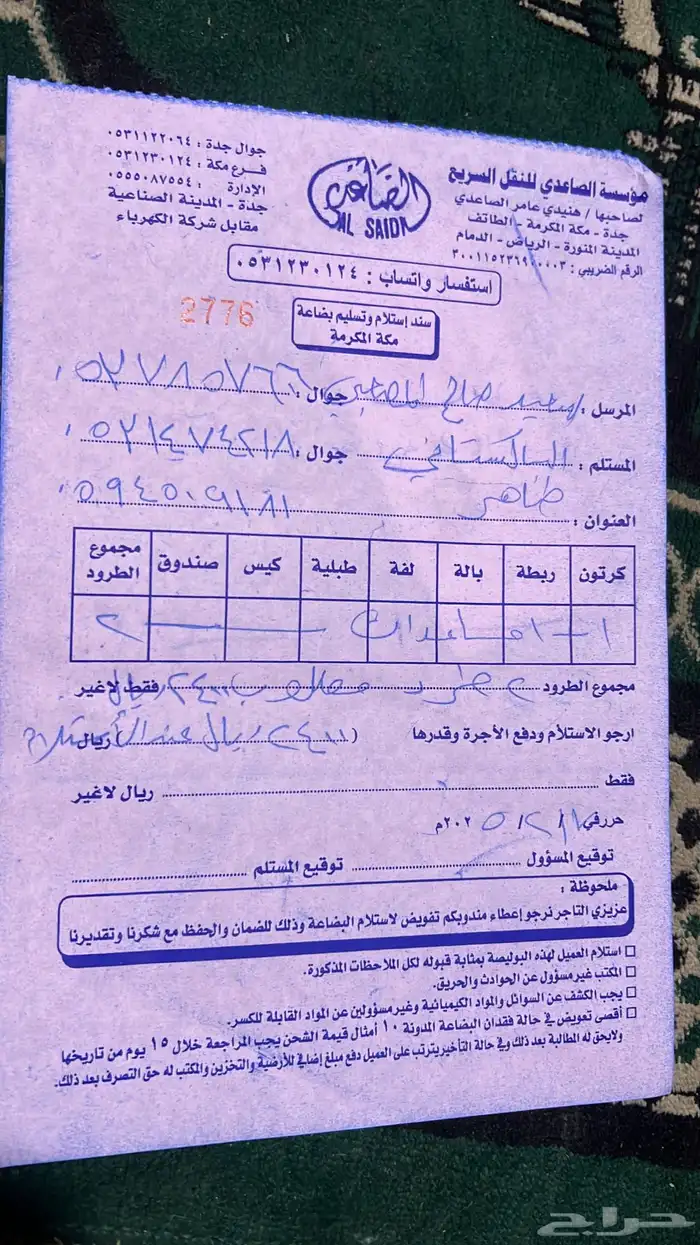 مؤسسة الصاعدي للنقل السريع
لصاحبها / هنيدي عامر الصاعدي
جدة - مكة المكرمة - الطائف
المدينة المنورة - الرياض - الدمام
الصاعدي
AL SAIDI
جوال جدة : ٠٥٣١١٢٢٠٦٤
فرع مكة : ٠٥٣١٢٣٠١٢٤
الإدارة : ٠٥٥٥٠٨٧٥٥٤
جدة - المدينة الصناعية
مقابل شركة الكهرباء
استفسار واتساب : ٠٥٣١٢٣٠١٢٤
2776
سند إستلام وتسليم بضاعة
مكة المكرمة
المرسل : سعيد صالح جوال :
المستلم : الباكستاني جوال : ٠٥٣١٤٧٤٢١٨
طاهر
العنوان : ٠٥٩٤٥٠٩١٨١
كرتون ربطة بالة لفة طبلية كيس صندوق مجموع الطرود
١ ١ ٢
مجموع الطرود ٢ طرد مطلوب ٢٤٠٠ ريال فقط لاغير
ارجو الاستلأم ودفع الأجرة وقدرها ( ٢٤٠٠ ريال عند الأستلام ) ريال
فقط ريال لاغير
حرر في / ٢ / ٢٠٢٥م
توقيع المسؤول توقيع المستلم
ملحوظة :
عزيزي التاجر نرجو إعطاء مندوبكم تفويض لاستلام البضاعة وذلك للضمان والحفظ مع شكرنا وتقديرنا
استلام العميل لهذه البوليصة بمثابة قبوله لكل الملاحظات المذكورة.
المكتب غير مسؤول عن الحوادث والحريق.
يجب الكشف عن السوائل والمواد الكيميائية وغير مسؤولين عن المواد القابلة للكسر.
أقصى تعويض في حالة فقدان البضاعة المدونة ١٠ أمثال قيمة الشحن يجب المراجعة خلال ١٥ يوم من تاريخها
ولايحق له المطالبة بعد ذلك وفي حالة التأخير يترتب على العميل دفع مبلغ إضافي للأرضية والتخزين والمكتب له حق التصرف بعد ذلك.
حراج